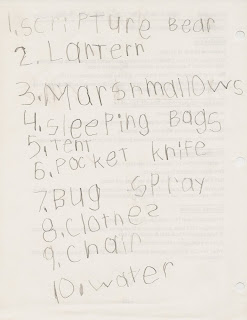 1. scripture Bear
2. Lantern
3. Marshmallows
4. sleeping Bags
5. Tent
6. Pocket knife
7. Bug spray
8. clothes
9. chair
10. water